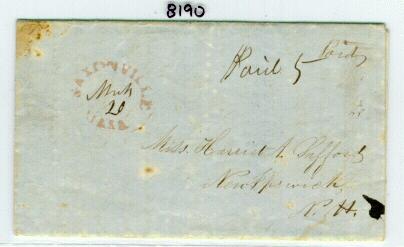 8190
Paid 5 Paid
SAXONVILLE
Mch
20
MASS
Miss. Harriet A.
New Ipswich
N. H.